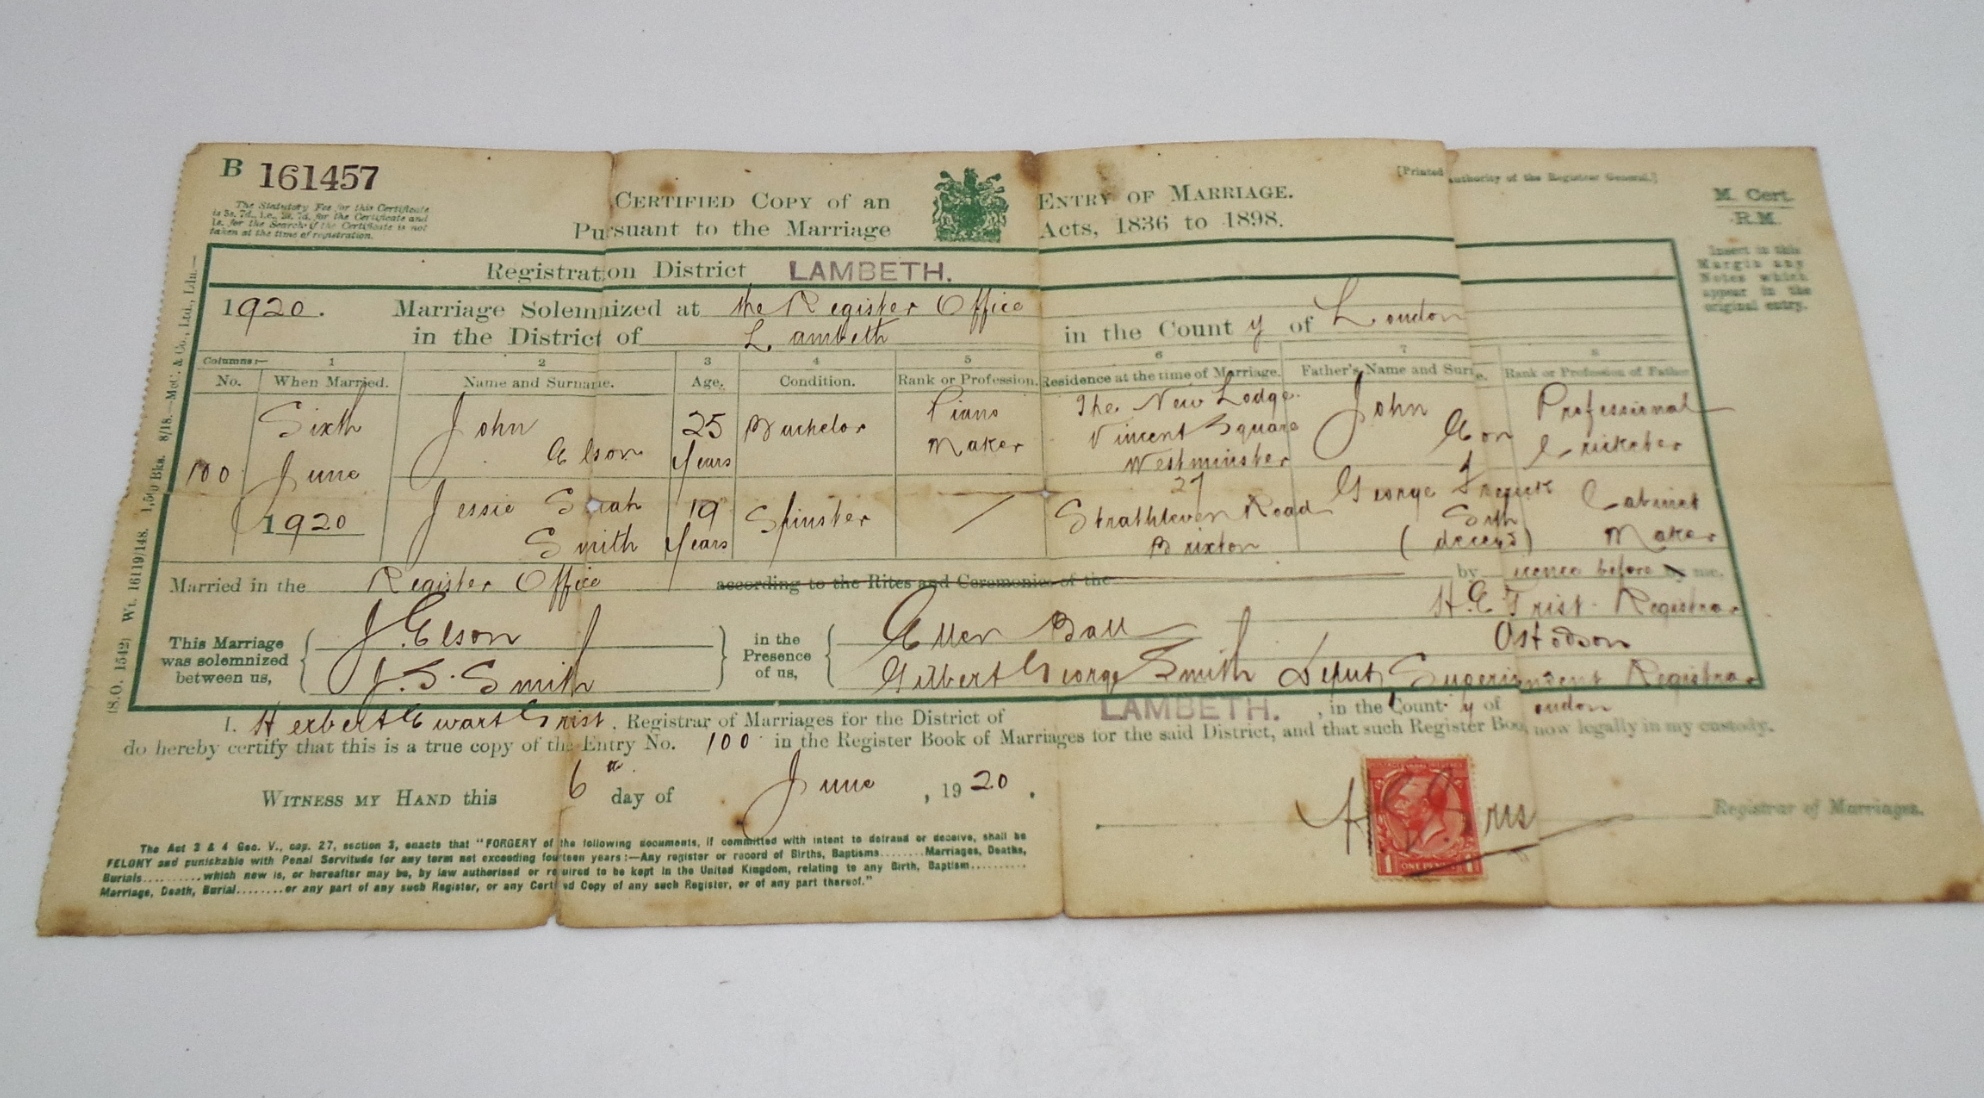 B 161457
The Statutory Fee for this Certificate
is 2s. 7d., i.e., 2s. 7d. for the Certificate and
1s. for the Search if the Certificate is not
taken at the time of registration.
CERTIFIED COPY OF AN ENTRY OF MARRIAGE.
Pursuant to the Marriage Acts, 1836 to 1898.
[Printed authority of the Registrar General.]
M. Cert.
R.M.
Insert in this
Margin any
Notes which
appear in the
original entry.
Registration District LAMBETH.
1920. Marriage Solemnized at the Register Office
in the District of Lambeth in the County of London
Columns:— 1 2 3 4 5 6 7 8
No. When Married. Name and Surname. Age. Condition. Rank or Profession. Residence at the time of Marriage. Father's Name and Surn e. Rank or Profession of Father
100 Sixth June 1920 John Elson 25 years Bachelor Piano Maker The New Lodge Vincent Square Westminster John Professional Cricketer
Jessie Smith 19 years Spinster / 27 Strathleven Road Brixton George Cabinet Maker
Married in the Register Office according to the Rites and Ceremonies of the by before me,
This Marriage was solemnized between us, J. Elson
J. S. Smith
in the Presence of us, Ellen Ball
Gilbert George Smith
Registrar
Deputy Superintendent Registrar
I, Herbert Ewart , Registrar of Marriages for the District of LAMBETH. , in the County of ondon
do hereby certify that this is a true copy of the Entry No. 100 in the Register Book of Marriages for the said District, and that such Register Boo now legally in my custody.
WITNESS MY HAND this 6th day of June , 1920 .
Registrar of Marriages.
ONE PENNY
The Act 3 & 4 Geo. V., cap. 27, section 3, enacts that "FORGERY of the following documents, if committed with intent to defraud or deceive, shall be
FELONY and punishable with Penal Servitude for any term not exceeding fourteen years:—Any register or record of Births, Baptisms........Marriages, Deaths,
Burials..........which now is, or hereafter may be, by law authorised or required to be kept in the United Kingdom, relating to any Birth, Baptism..........
Marriage, Death, Burial........or any part of any such Register, or any Certified Copy of any such Register, or of any part thereof."